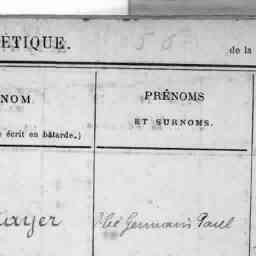 ÉTIQUE.
56
de la
NOM
PRÉNOMS
ET SURNOMS.
écrit en bâtarde.)
ayer
Germain Paul